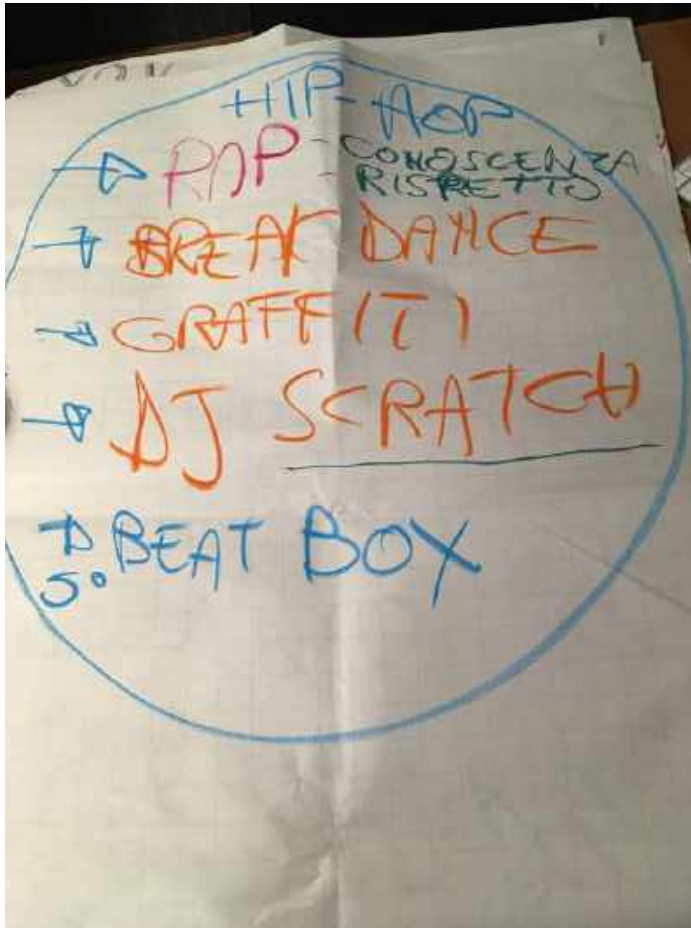 HIP-HOP
→ RAP - CONOSCENZA
- RISPETTO
→ BREAK DANCE
→ GRAFFITI
→ DJ SCRATCH
→ BEAT BOX
5°